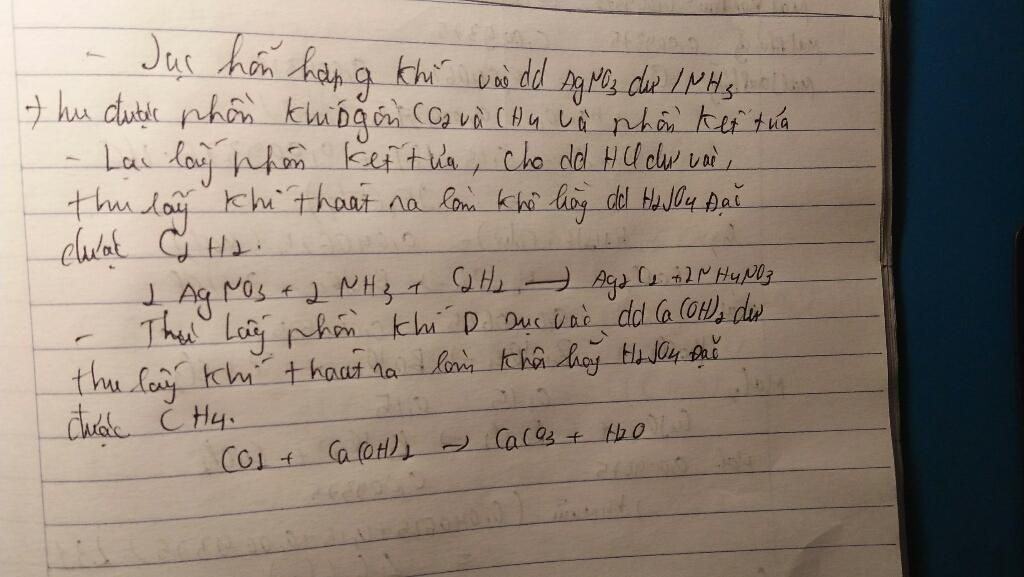 - Sục hỗn hợp g khí vào dd AgNO3 dư /NH3
→ thu được phần khí D gồm CO2 và CH4 và phần kết tủa
- Lọc lấy phần kết tủa, cho dd HCl dư vào,
thu lấy khí thoát ra làm khô bằng dd H2SO4 đặc
được C2H2.
2 AgNO3 + 2 NH3 + C2H2 → Ag2C2 + 2NH4NO3
- Thu lấy phần khí D sục vào dd Ca(OH)2 dư
thu lấy khí thoát ra làm khô bằng H2SO4 đặc
được CH4.
CO2 + Ca(OH)2 → CaCO3 + H2O